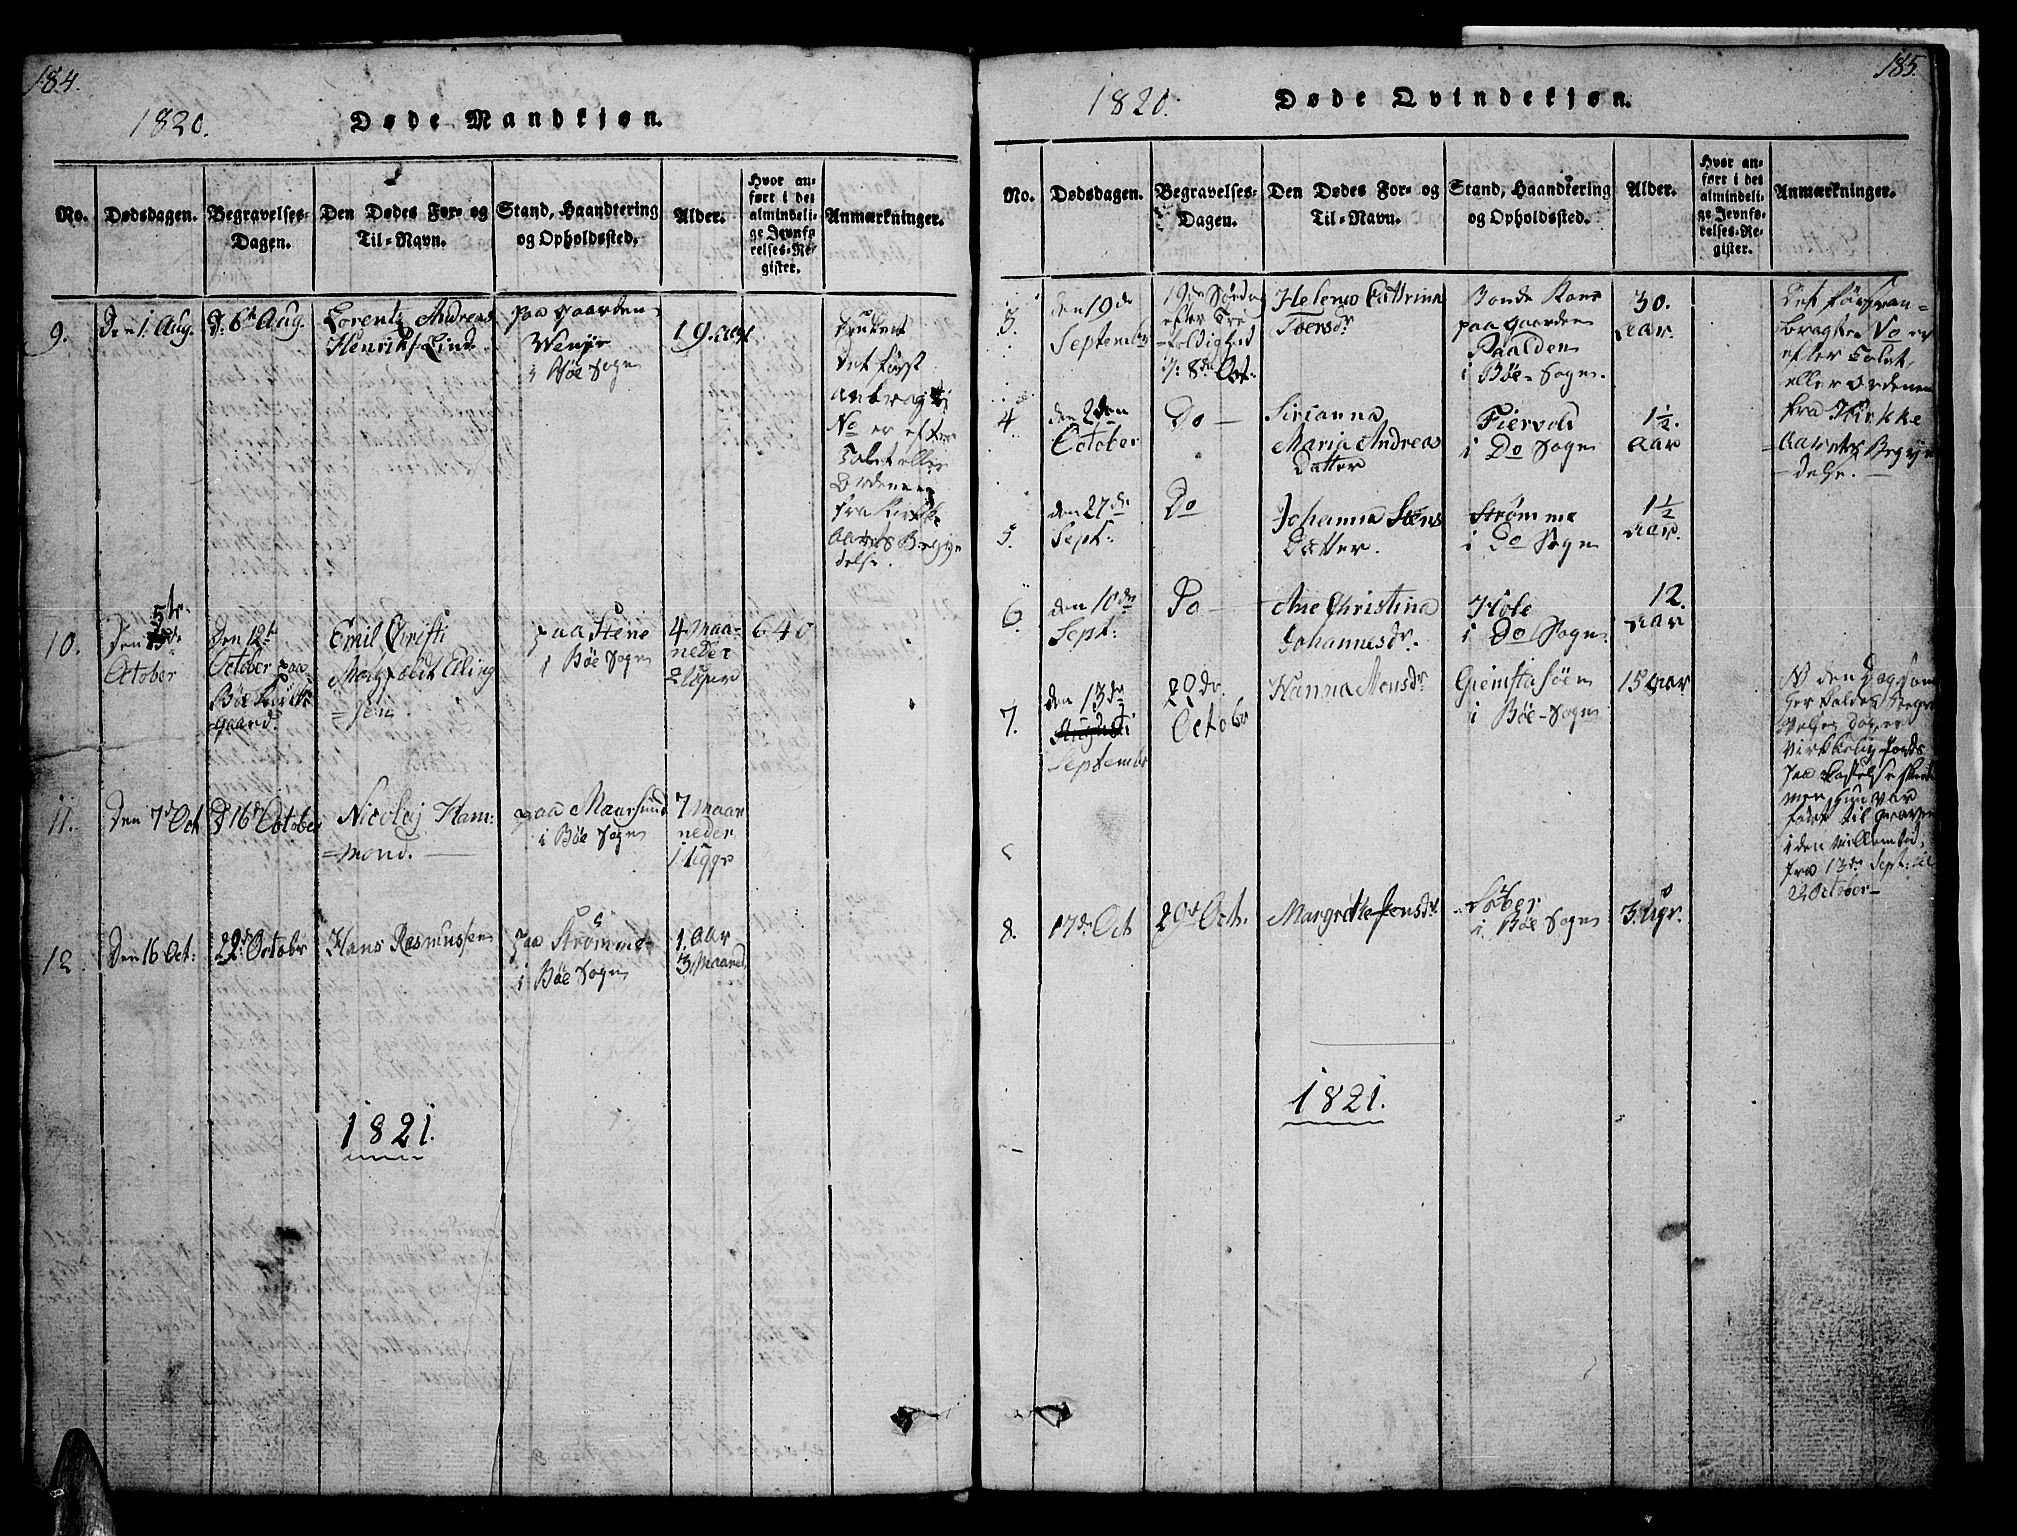 184.
1820.
Døde Mandkjøn.
No.
Dødsdagen.
Begravelses-
Dagen.
Den Dødes For- og
Til-Navn.
Stand, Haandtering
og Opholdssted.
Alder.
Hvor an-
ført i det
almindeli-
ge Jevnfø-
relses-Re-
gister.
Anmærkninger.
9.
Den 1. Aug.
D: 6te Aug.
Lorentz Andreas
Henriks. Lind
paa gaarden
i Bøe Sogn
19. aar
det først
anbragte
No er efter
Talet eller
Ordenen
fra Kirke
Aarets Begyn
delse.
10.
5te
Den
October
Den 12te
October paa
Bøe Kirke
gaard.
Emil Christi
=sen.
paa Steine
i Bøe Sogn
4 Maa-
neder
640
11.
Den 7de Oct
D 16de October
Nicolaj Ham=
=mond.
paa Maarsund
i Bøe Sogn
7 Maa
neder
12.
Den 16 Oct:
22de Octobr
Hans Rasmussen
paa Strømme
i Bøe Sogn
1. Aar
3 Maaned.
1821.
185.
1820.
Døde Qvindekjøn.
No.
Dødsdagen.
Begravelses-
Dagen.
Den Dødes For- og
Til-Navn.
Stand, Haandtering
og Opholdssted.
Alder.
Hvor an-
ført i det
almindeli-
ge Jevnfø-
relses-Re-
gister.
Anmærkninger.
3.
den 19de
September
19de Søndag
efter Tre
=foldighed
i/: 8de Oct:
Helena Cathrina
Iversdr
Bonde Kone
paa gaarden
i Bøe-Sogn.
30.
aar.
Det foran-
bragte No er
efter Talet,
eller Ordenen
fra Kirke
Aarets Begyn
delse.
4
den 2den
October
Do
Sirianna
Maria Andreas
Datter
Fiervold
i Do Sogn
1½.
Aar
5.
den 27de
Sept:
Do
Johanna Stens
Datter.
Strømme
i Do Sogn
1½
aar.
6.
den 10de
Sept:
Do
Ane Christina
Johannesdr.
Hole
i Do Sogn.
12.
aar
7.
den 13de
Augusti
September
29de
Octobr
Hanna Stensdr
i Bøe-Sogn
15 aar
den Dag som
virkelig Jords
paa kastelse skeede
men hun var
ført til graven
i den Mellemtid,
fra 13de Sept: til
22 October
8.
17de Oct
29de Oct.
Margrethe Jensdr.
i Bøe Sogn
3 Ugr.
1821.